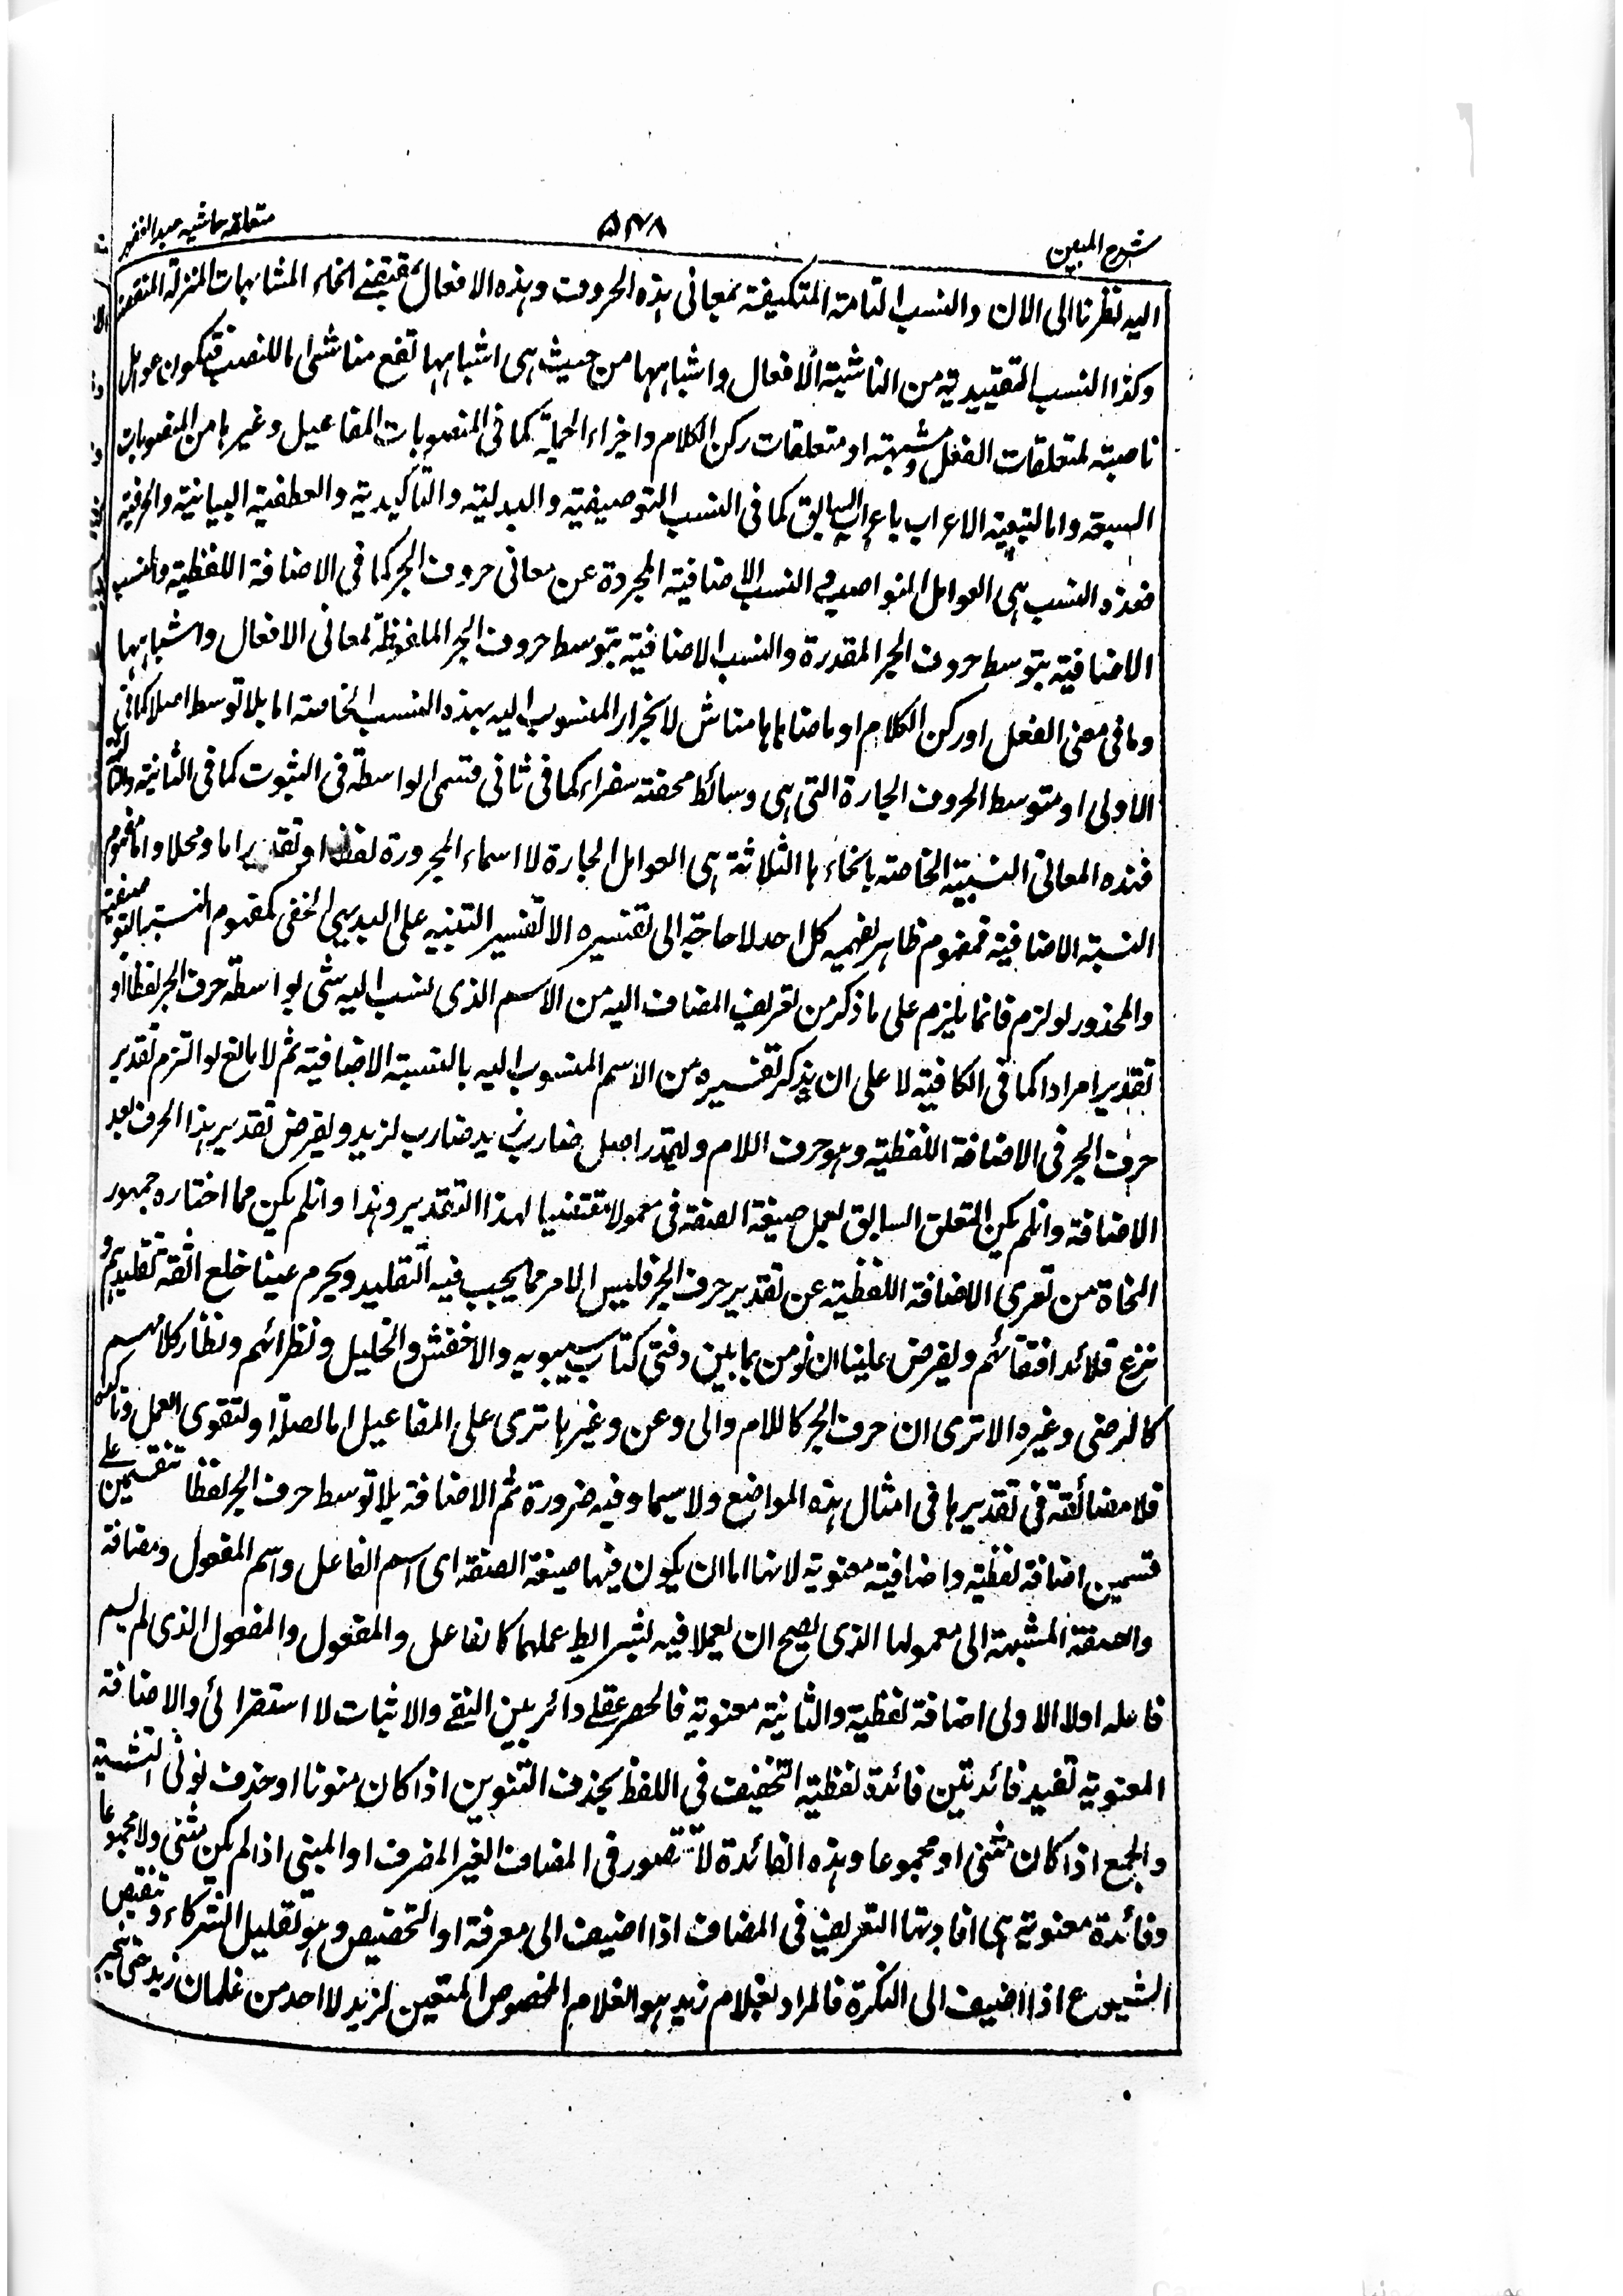 شرح المبین ٥٣٨ متعلقہ حاشیہ عبد الغفور
الیہ نظرنا الی الان والنسب التامۃ المتکیفۃ بمعانی ہذہ الحروف وہذہ الافعال انحاء المشابہات المنزلۃ
وکذا النسب التقییدیۃ من الناشیۃ الافعال واشباہہا من حیث ہی اشباہہا تقع مناشی اما للنصب فتکون عوامل
ناصبۃ لمتعلقات الفعل وشبہتہ او متعلقات رکن الکلام واجزاء الجملۃ کما فی المنصوبات المفاعیل وغیرہا من المنصوبات
السبعۃ واما لتبعیۃ الاعراب باعراب السابق کما فی النسب التوصیفیۃ والبدلیۃ والتاکیدیۃ والعطفیۃ البیانیۃ والحرفیۃ
فہذہ النسب ہی العوامل النواصب والنسب الاضافیۃ المجردۃ عن معانی حروف الجر کما فی الاضافۃ اللفظیۃ والنسب
الاضافیۃ بتوسط حروف الجر المقدرۃ والنسب الاضافیۃ بتوسط حروف الجر الملفوظۃ لمعانی الافعال واشباہہا
وما فی معنی الفعل اورکن الکلام او ما ضاہاہا مناش لانجرار المنسوب الیہ بہذہ النسب الخاصۃ اما بلا توسط اصلا کما فی
الاولی او بتوسط الحروف الجارۃ التی ہی وسائط محضۃ سفراء کما فی ثانی قسمی الواسطۃ فی الثبوت کما فی الثانیۃ والثالثۃ
فہذہ المعانی النسبیۃ الخاصۃ بانحاءہا الثلاثۃ ہی العوامل الجارۃ لا اسماء المجرورۃ لفظا او تقدیرا اما ومحلا واما مفہوم
النسبۃ الاضافیۃ فمفہوم ظاہر یفہمہ کل احد لا حاجۃ الی تفسیرہ الا لتفسیر التنبیہ علی البدیہی الخفی کمفہوم النسبۃ التوصیفیۃ
والمحذور لو لزم فانما یلزم علی ما ذکر من تعریف المضاف الیہ من الاسم الذی نسب الیہ شئی بواسطۃ حرف الجر لفظا او
تقدیرا مرادا کما فی الکافیۃ لا علی ان یذکر تفسیرہ من الاسم المنسوب الیہ بالنسبۃ الاضافیۃ ثم لا مانع لو التزم تقدیر
حرف الجر فی الاضافۃ اللفظیۃ وہو حرف اللام ولیقدر اصل ضارب زید ضارب لزید ویفرض تقدیر ہذا الحرف بعد
الاضافۃ وانلم یکن المتعلق السابق لعمل صیغۃ الصفۃ فی معمولا مقتضیا لہذا التقدیر وہذا وانلم یکن مما اختارہ جمہور
النحاۃ من تعری الاضافۃ اللفظیۃ عن تقدیر حرف الجر فلیس الامر مما یجب فیہ التقلید ویحرم عینا خلع تقلیدہم و
نزع قلائد ولیفرض علینا ان نومن بما بین دفتی کتاب سیبویہ والاخفش والخلیل ونظرائہم ونظار کلامہم
کالرضی وغیرہ الا تری ان حرف الجر کاللام والی وعن وغیرہا تری علی المفاعیل اما لصلۃ او لتقوی العمل وتاکیدہ
فلا مضائقۃ فی تقدیرہا فی امثال ہذہ المواضع ولا سیما وفیہ ضرورۃ ثم الاضافۃ بلا توسط حرف الجر لفظا تنقسم علی
قسمین اضافۃ لفظیۃ واضافیۃ معنویۃ لانہا اما ان یکون فیہا صیغۃ الصفۃ ای اسم الفاعل واسم المفعول ومضافۃ
والصفۃ المشبہۃ الی معمولہا الذی یصح ان یعملا فیہ بشرایط عملہما کالفاعل والمفعول والمفعول الذی لم یسم
فاعلہ اولا الاولی اضافۃ لفظیۃ والثانیۃ معنویۃ فالحصر عقلے دائر بین النفے والاثبات لا استقرائی والاضافۃ
المعنویۃ تفید فائدتین فائدۃ لفظیۃ التخفیف فی اللفظ بحذف التنوین اذا کان منونا او حذف نونی التثنیۃ
والجمع اذا کان مثنی او مجموعا وہذہ الفائدۃ لا تتصور فی المضاف الغیر المنصرف او المبنی اذا لم یکن مثنی ولا مجموعا
وفائدۃ معنویۃ ہی افادتہا التعریف فی المضاف اذا اضیف الی معرفۃ او التخصیص وہو تقلیل الشرکاء وتنقیص
الشیوع اذا اضیف الی النکرۃ فالمراد بغلام زید ہو الغلام المخصوص المتعین لزید لا احد من غلمان زید حتی یخبر